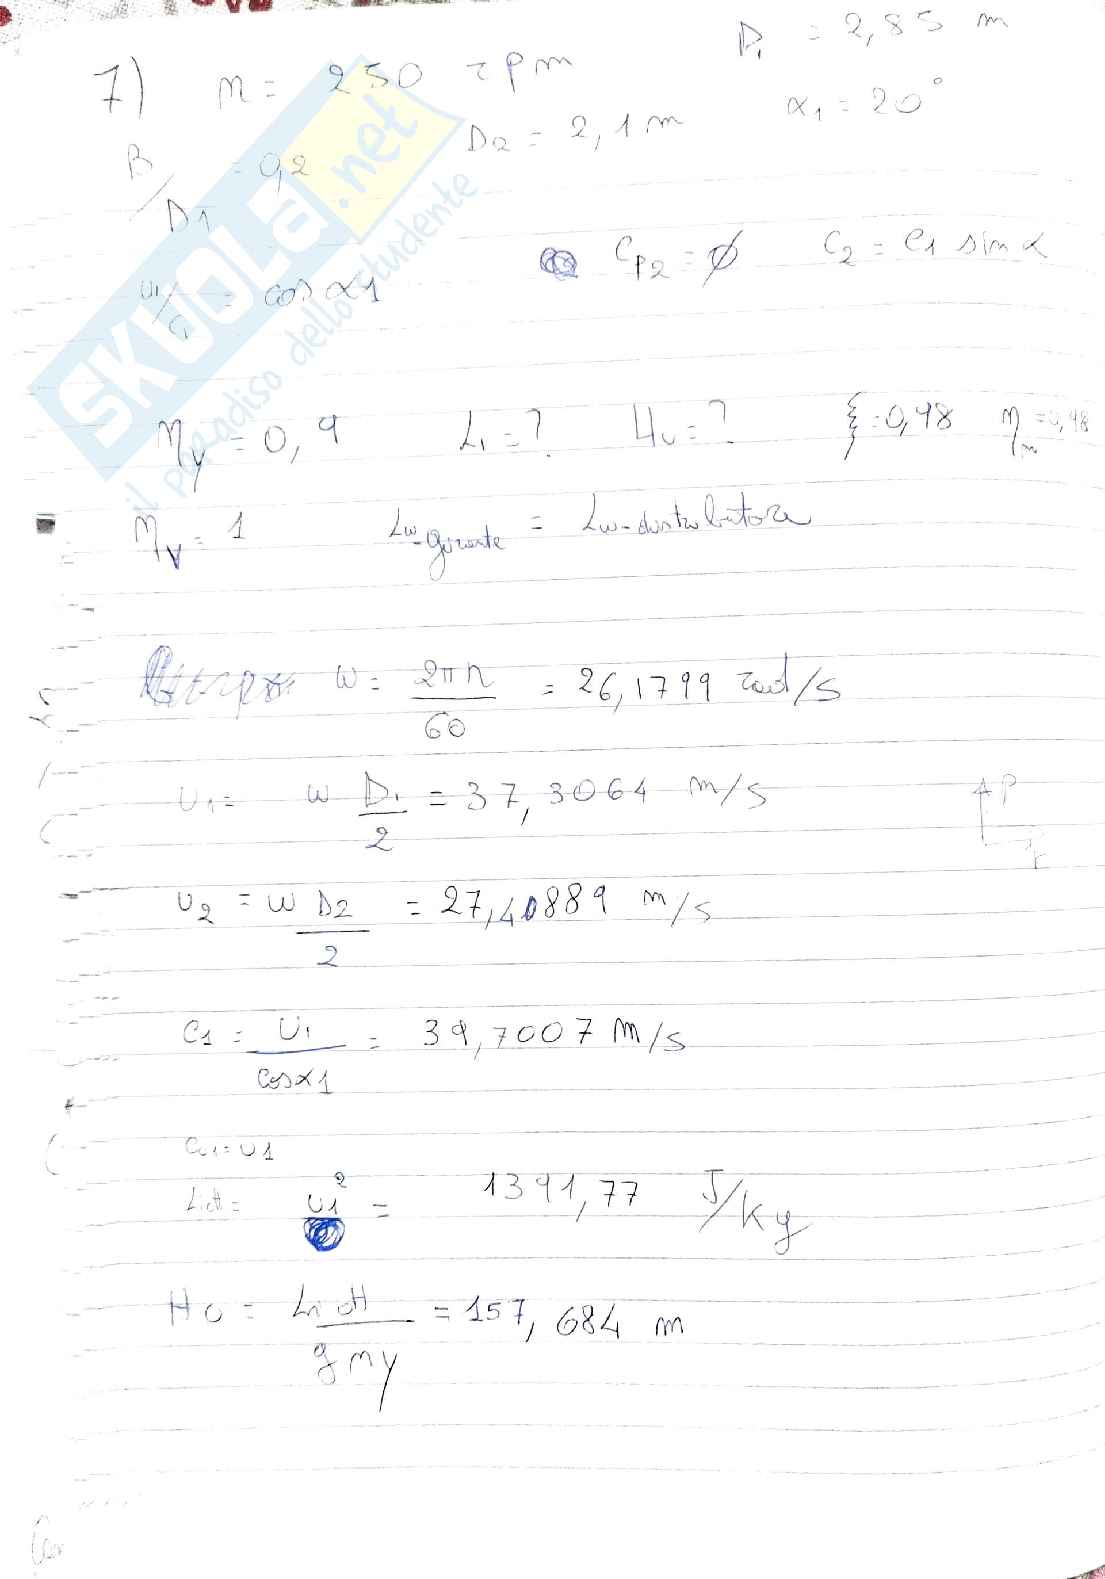 7) n = 250 rpm D1 = 2,85 m
B/D1 = 0,2 D2 = 2,1 m α1 = 20°
u1/c1 = cos α1 Cp2 = ϕ C2 = C1 sin α
SKUOLA.net
il paradiso dello studente
ηy = 0,9 Li = ? Hu = ? ξ = 0,98 ηm = 0,98
ηv = 1 Lw-girante = Lw-distributore
ω = 2πn/60 = 26,1799 rad/s
U1 = ω D1/2 = 37,3064 m/s
P
r
U2 = ω D2/2 = 27,48889 m/s
C1 = U1/cosα1 = 39,7007 m/s
Cu1 = U1
Lid = U1² = 1391,77 J/kg
HU = Lid/gηy = 157,684 m